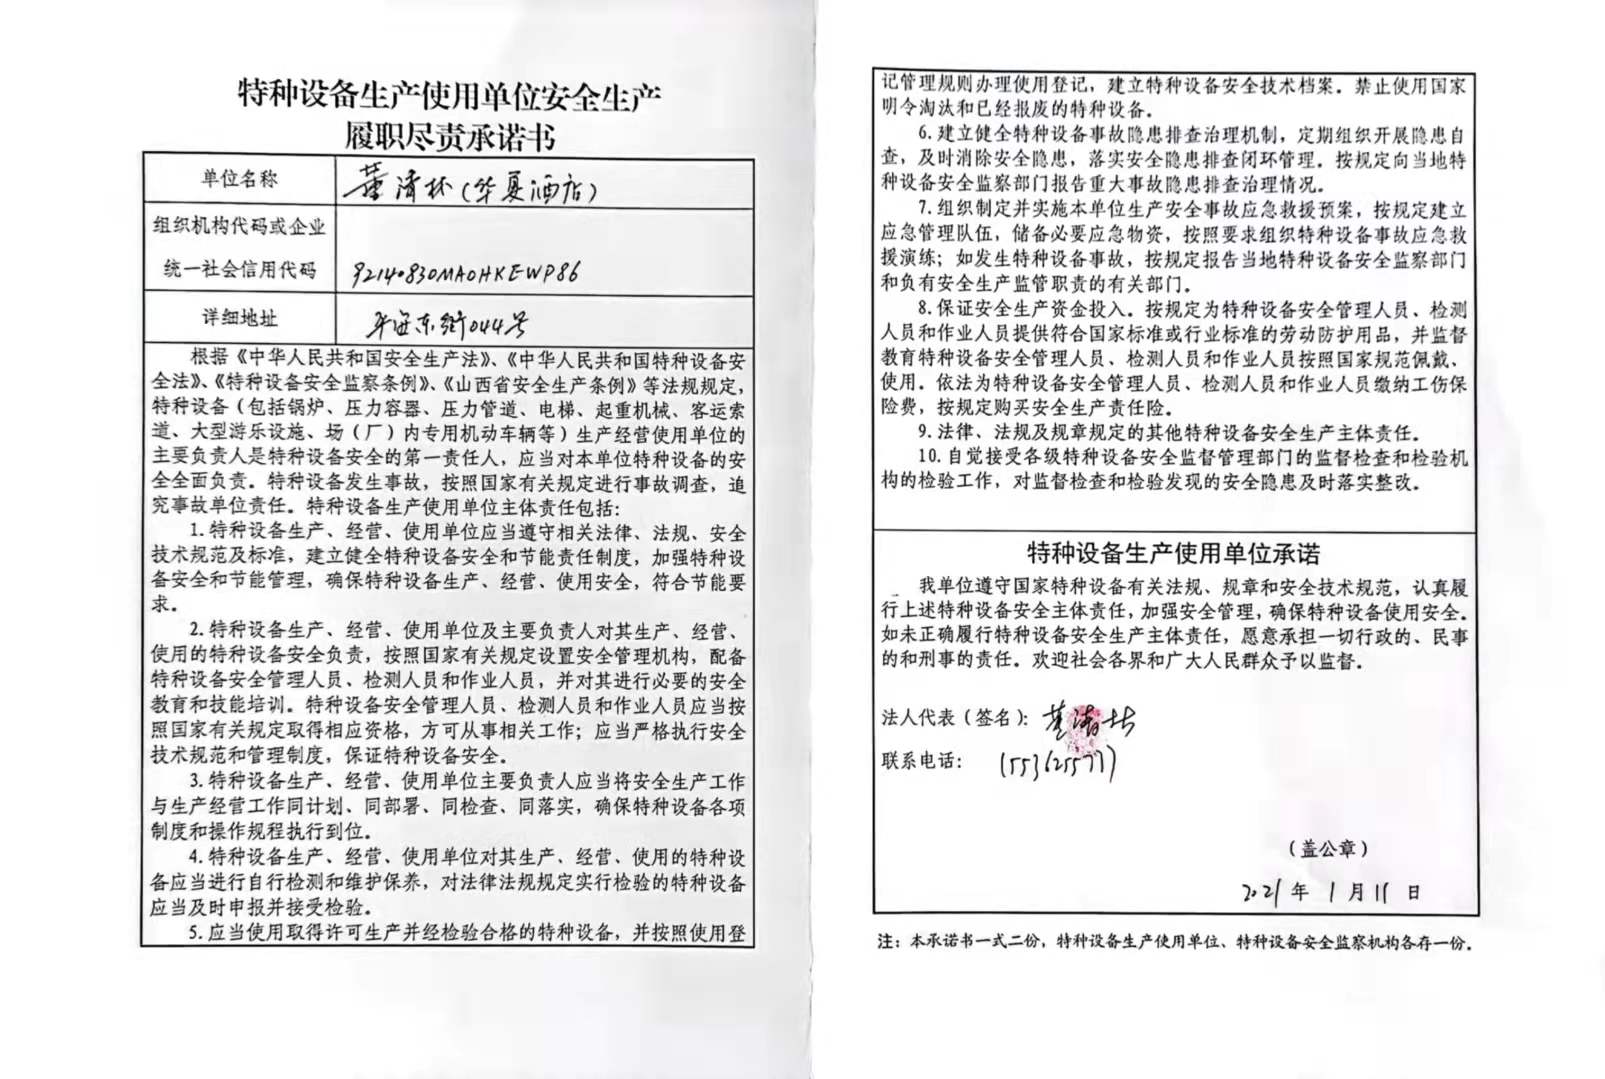 特种设备生产使用单位安全生产
履职尽责承诺书
单位名称
董清林(华夏酒店)
组织机构代码或企业
统一社会信用代码
92140830MA0HKEWP86
详细地址
东街044号
根据《中华人民共和国安全生产法》、《中华人民共和国特种设备安
全法》、《特种设备安全监察条例》、《山西省安全生产条例》等法规规定，
特种设备（包括锅炉、压力容器、压力管道、电梯、起重机械、客运索
道、大型游乐设施、场（厂）内专用机动车辆等）生产经营使用单位的
主要负责人是特种设备安全的第一责任人，应当对本单位特种设备的安
全全面负责。特种设备发生事故，按照国家有关规定进行事故调查，追
究事故单位责任。特种设备生产使用单位主体责任包括：
1.特种设备生产、经营、使用单位应当遵守相关法律、法规、安全
技术规范及标准，建立健全特种设备安全和节能责任制度，加强特种设
备安全和节能管理，确保特种设备生产、经营、使用安全，符合节能要
求。
2.特种设备生产、经营、使用单位及主要负责人对其生产、经营、
使用的特种设备安全负责，按照国家有关规定设置安全管理机构，配备
特种设备安全管理人员、检测人员和作业人员，并对其进行必要的安全
教育和技能培训。特种设备安全管理人员、检测人员和作业人员应当按
照国家有关规定取得相应资格，方可从事相关工作；应当严格执行安全
技术规范和管理制度，保证特种设备安全。
3.特种设备生产、经营、使用单位主要负责人应当将安全生产工作
与生产经营工作同计划、同部署、同检查、同落实，确保特种设备各项
制度和操作规程执行到位。
4.特种设备生产、经营、使用单位对其生产、经营、使用的特种设
备应当进行自行检测和维护保养，对法律法规规定实行检验的特种设备
应当及时申报并接受检验。
5.应当使用取得许可生产并经检验合格的特种设备，并按照使用登
记管理规则办理使用登记，建立特种设备安全技术档案。禁止使用国家
明令淘汰和已经报废的特种设备。
6.建立健全特种设备事故隐患排查治理机制，定期组织开展隐患自
查，及时消除安全隐患，落实安全隐患排查闭环管理。按规定向当地特
种设备安全监察部门报告重大事故隐患排查治理情况。
7.组织制定并实施本单位生产安全事故应急救援预案，按规定建立
应急管理队伍，储备必要应急物资，按照要求组织特种设备事故应急救
援演练；如发生特种设备事故，按规定报告当地特种设备安全监察部门
和负有安全生产监管职责的有关部门。
8.保证安全生产资金投入。按规定为特种设备安全管理人员、检测
人员和作业人员提供符合国家标准或行业标准的劳动防护用品，并监督
教育特种设备安全管理人员、检测人员和作业人员按照国家规范佩戴、
使用。依法为特种设备安全管理人员、检测人员和作业人员缴纳工伤保
险费，按规定购买安全生产责任险。
9.法律、法规及规章规定的其他特种设备安全生产主体责任。
10.自觉接受各级特种设备安全监督管理部门的监督检查和检验机
构的检验工作，对监督检查和检验发现的安全隐患及时落实整改。
特种设备生产使用单位承诺
我单位遵守国家特种设备有关法规、规章和安全技术规范，认真履
行上述特种设备安全主体责任，加强安全管理，确保特种设备使用安全。
如未正确履行特种设备安全生产主体责任，愿意承担一切行政的、民事
的和刑事的责任。欢迎社会各界和广大人民群众予以监督。
法人代表（签名）：董清林
联系电话：15536255777
（盖公章）
2021年1月11日
注：本承诺书一式二份，特种设备生产使用单位、特种设备安全监察机构各存一份。